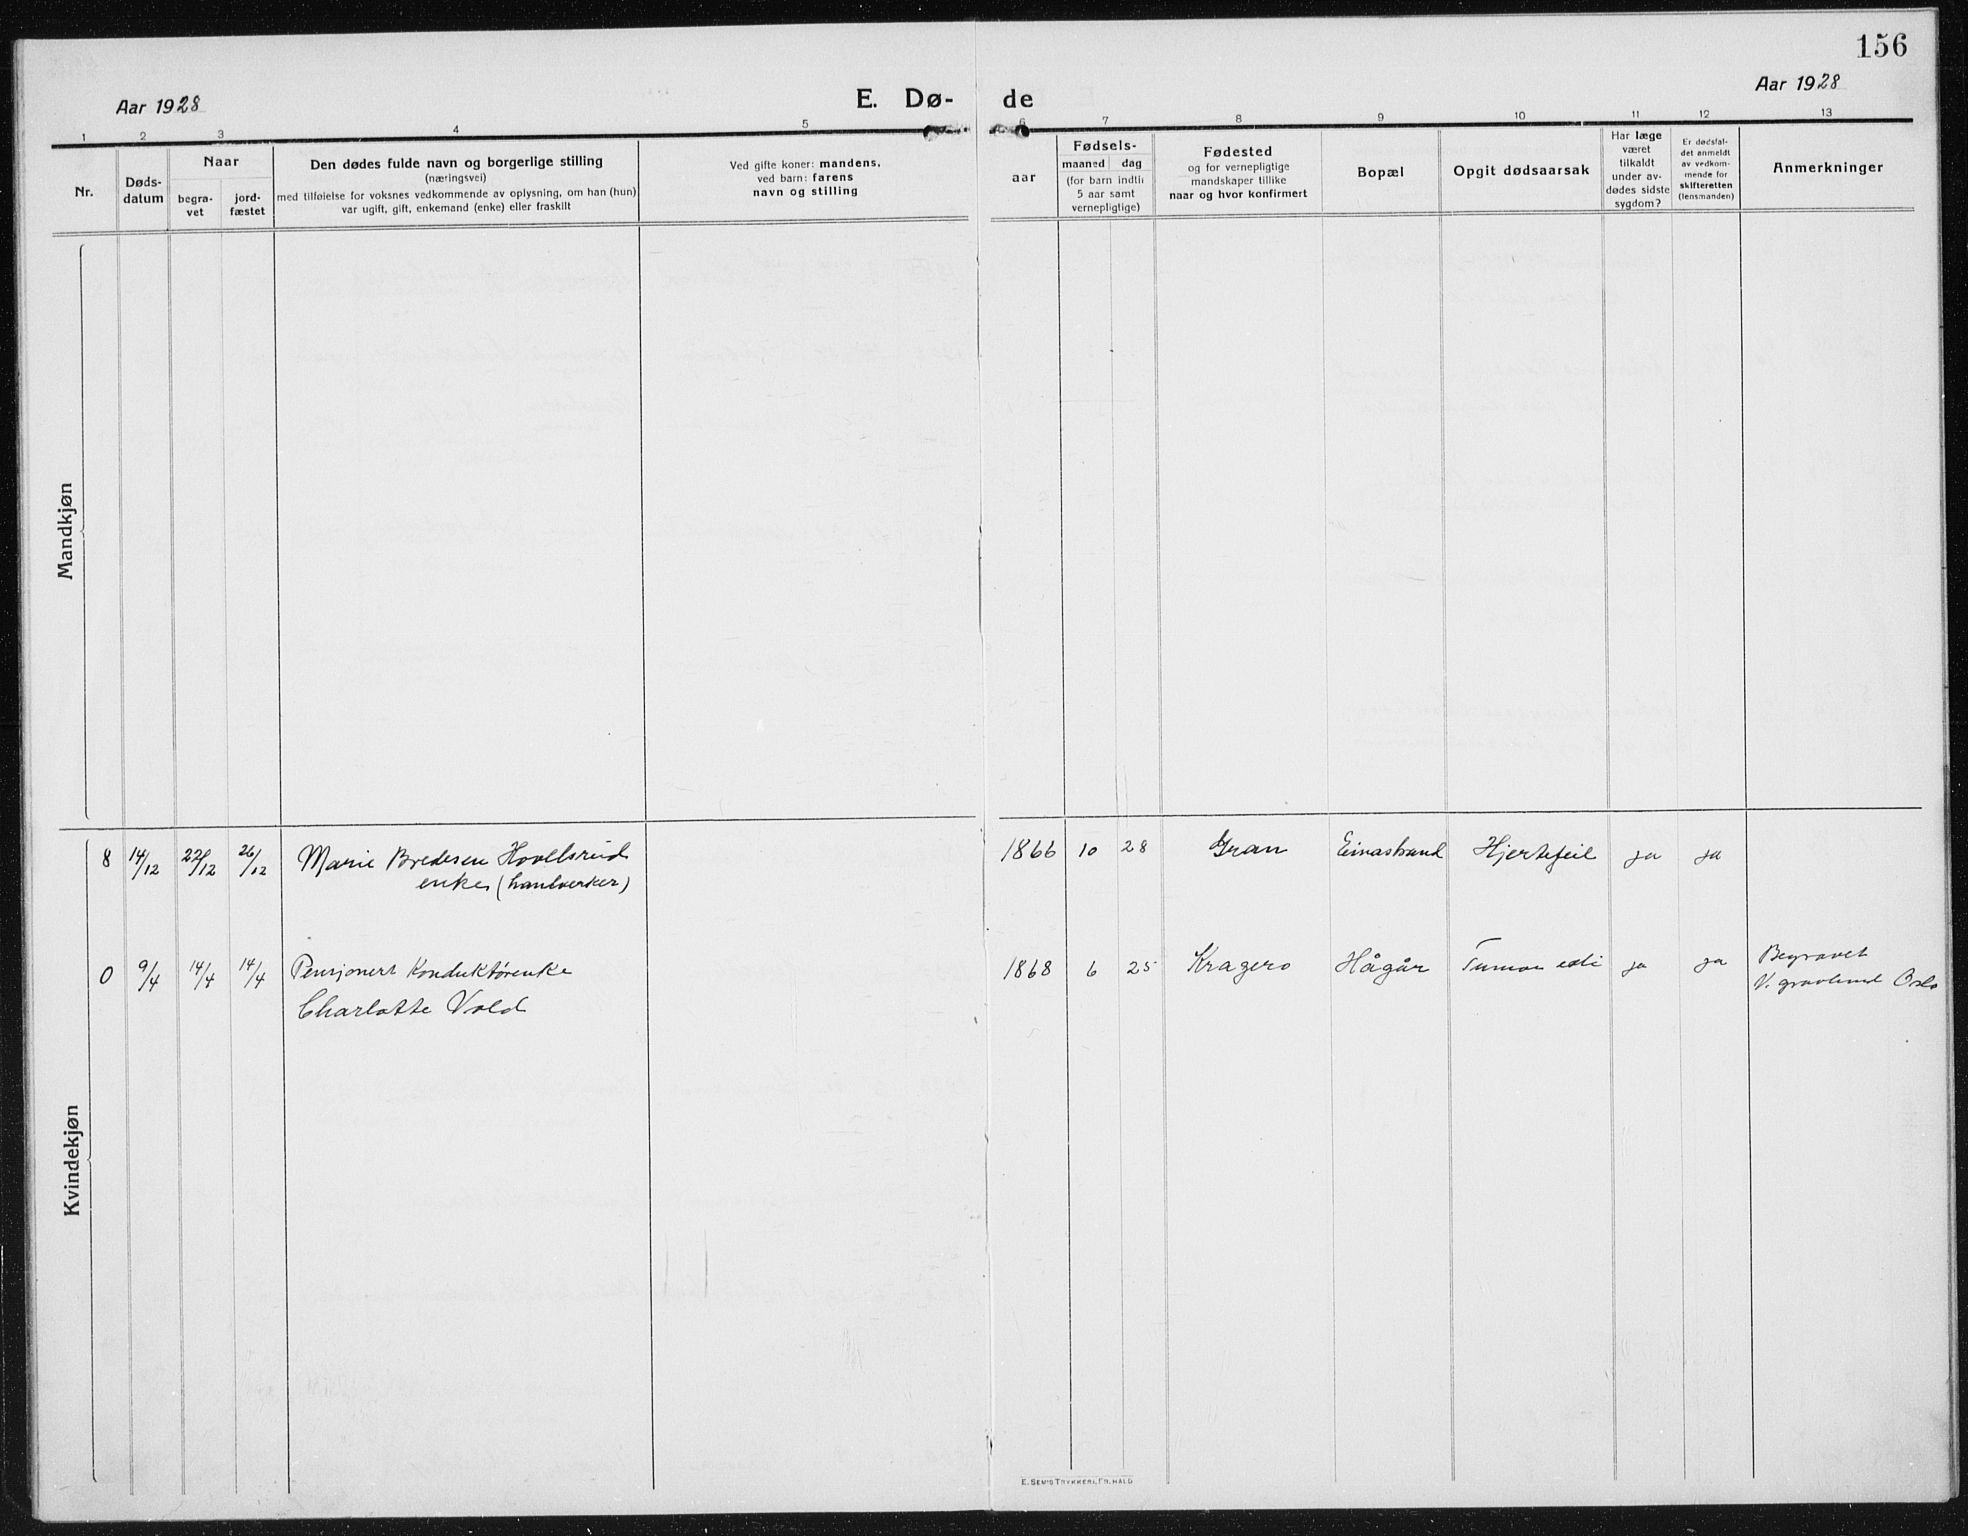 156
Aar 1928
E. Dø-
de
Aar 1928
1 2 3 4 5 6 7 8 9 10 11 12 13
Nr.
Døds-
datum
Naar
begra-
vet
jord-
fæstet
Den dødes fulde navn og borgerlige stilling
(næringsvei)
med tilføielse for voksnes vedkommende av oplysning, om han (hun)
var ugift, gift, enkemand (enke) eller fraskilt
Ved gifte koner: mandens,
ved barn: farens
navn og stilling
aar
Fødsels-
maaned dag
(for barn indtil
5 aar samt
vernepligtige)
Fødested
og for vernepligtige
mandskaper tillike
naar og hvor konfirmert
Bopæl
Opgit dødsaarsak
Har læge
været
tilkaldt
under av-
dødes sidste
sygdom?
Er dødsfal-
det anmeldt
av vedkom-
mende for
skifteretten
(lensmanden)
Anmerkninger
Mandkjøn
Kvindekjøn
8 14/12 22/12 26/12 Marie Bredesen Hovelsrud 1866 10 28 Gran Einastrand Hjertefeil ja ja
enke (hantverker)
0 9/4 14/4 14/4 Pensjonert Konduktørenke 1868 6 25 Kragerø Hågår Tumor ja ja Begravet
Charlotte Vold V. gravlund Oslo
E. SEM'S TRYKKERI, FR.HALD